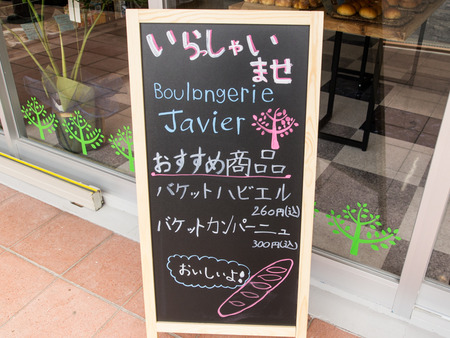 いらっしゃい
ませ
Boulangerie
Javier
おすすめ商品
バケットハビエル
260円(込)
バケットカンパーニュ
300円(込)
おいしいよ!